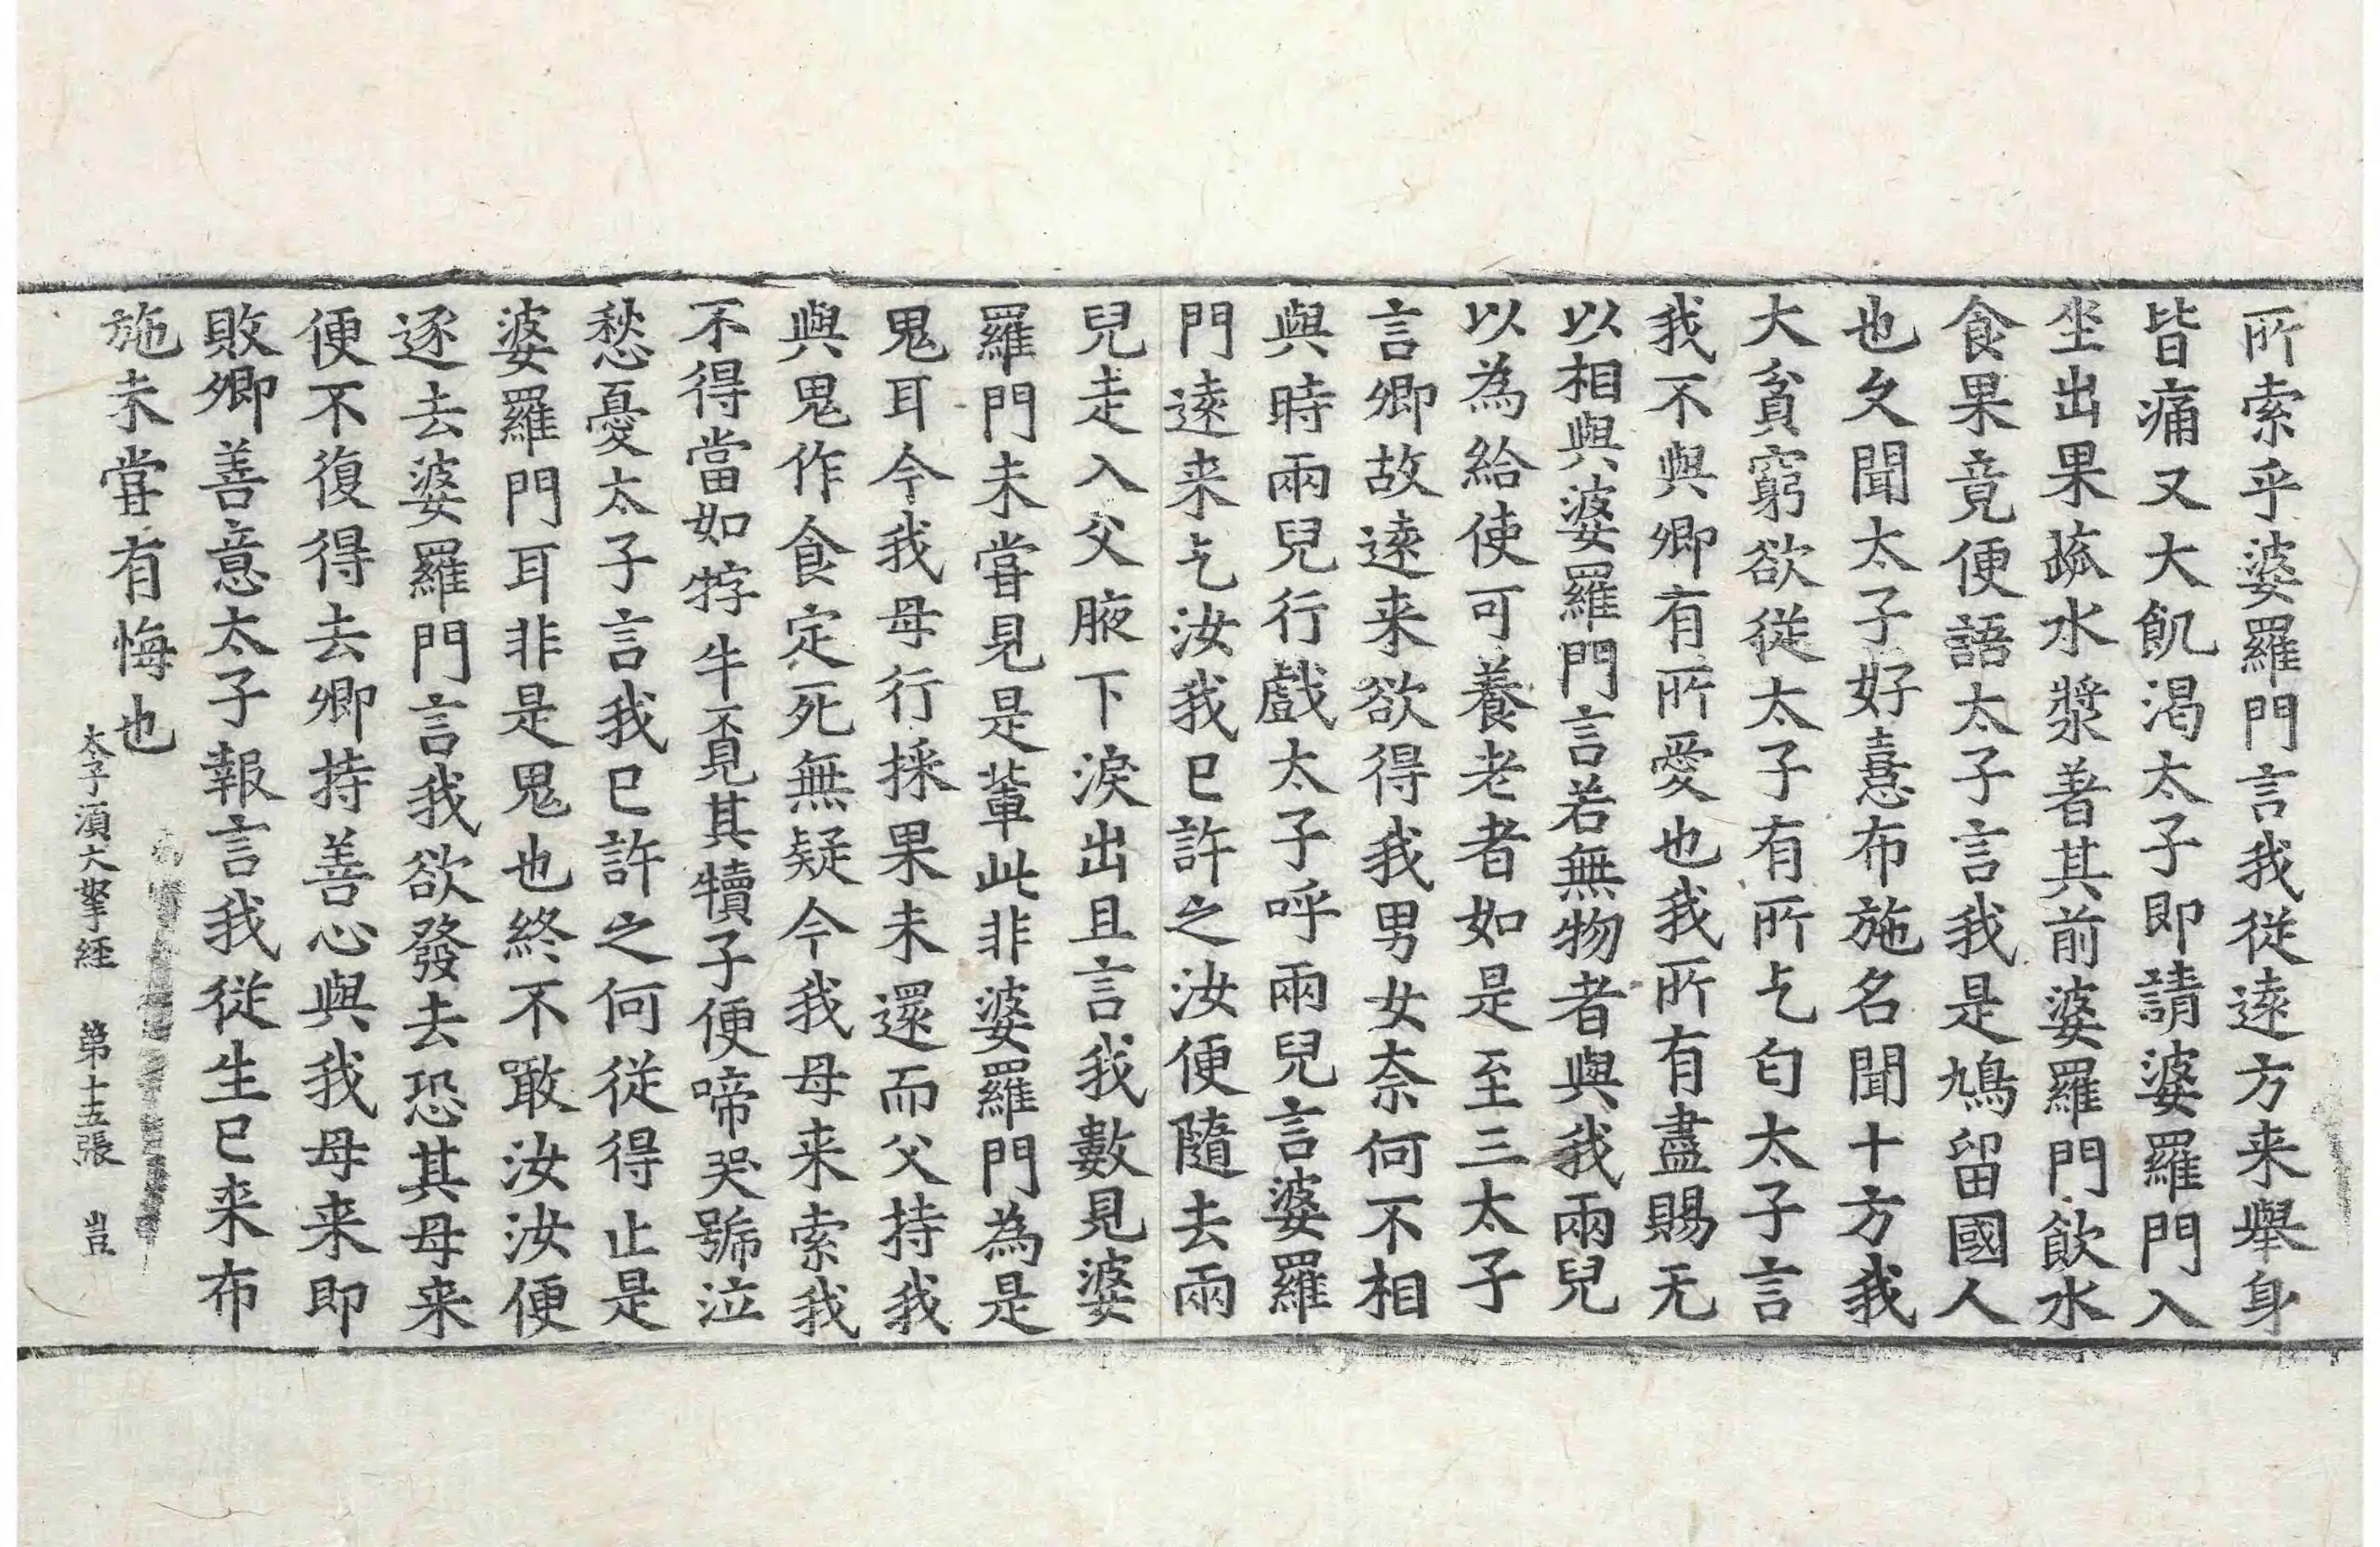 所索乎婆羅門言我從遠方来舉身
皆痛又大飢渴太子即請婆羅門入
坐出果蓏水漿著其前婆羅門飲水
食果竟便語太子言我是鳩留國人
也久聞太子好憙布施名聞十方我
大貧窮欲從太子有所乞匂太子言
我不與卿有所愛也我所有盡賜无
以相與婆羅門言若無物者與我兩兒
以為給使可養老者如是至三太子
言卿故遠来欲得我男女奈何不相
與時兩兒行戲太子呼兩兒言婆羅
門遠来乞汝我已許之汝便隨去兩
兒走入父腋下淚出且言我數見婆
羅門未甞見是輩此非婆羅門為是
鬼耳今我母行採果未還而父持我
與鬼作食定死無疑今我母来索我
不得當如牸牛覔其犢子便啼哭號泣
愁憂太子言我已許之何從得止是
婆羅門耳非是鬼也終不噉汝汝便
逐去婆羅門言我欲發去恐其母来
便不復得去卿持善心與我母来即
敗卿善意太子報言我從生已来布
施未甞有悔也
太子湏大拏經 第十五張 豈